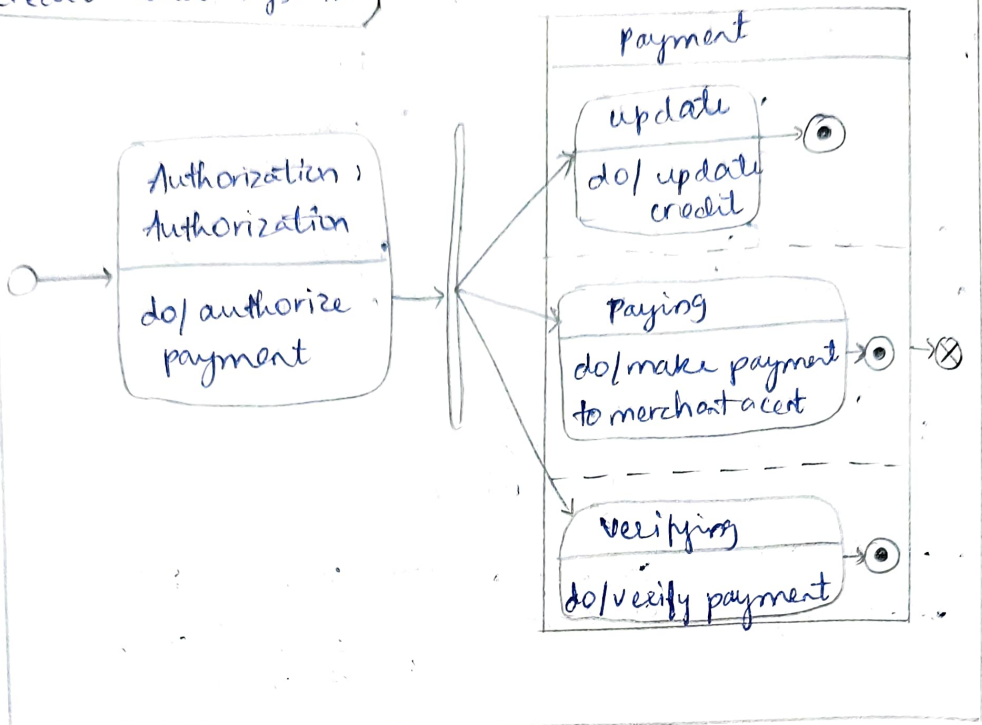 Authorization :
Authorization
do/ authorize
payment
Payment
update
do/ update
credit
Paying
do/make payment
to merchant acent
Verifying
do/verify payment